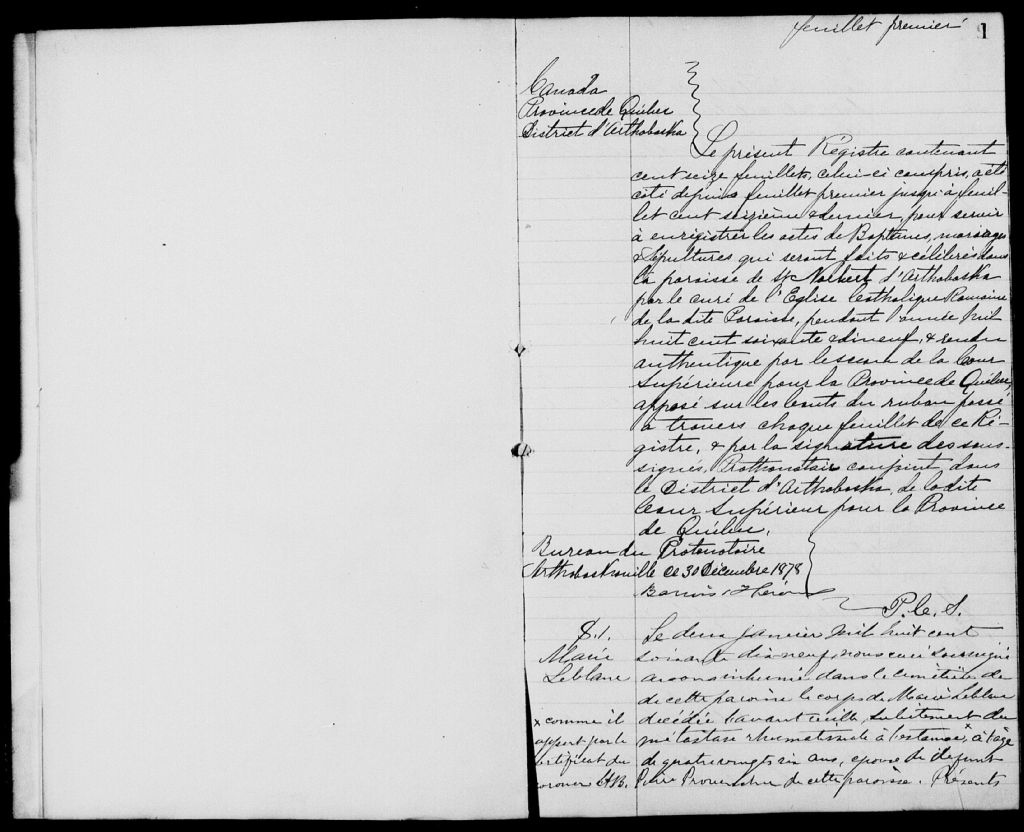 feuillet premier 1
Canada
Province de Québec
District d'Arthabaska
Le présent Régistre contenant
cent seize feuillets, celui-ci compris, a été
coté depuis feuillet premier jusqu'à feuil-
let cent seizième & dernier, pour servir
à enrégistrer les actes de Baptêmes, mariages
& Sépultures qui seront faits & célébrés dans
la paroisse de St Norbert d'Arthabaska
par le curé de l'Eglise Catholique Romaine
de la dite Paroisse, pendant l'année mil
huit cent soixante & dixneuf, & rendu
authentique par le sceau de la Cour
Supérieure pour la Province de Québec,
apposé sur les bouts du ruban passé
à travers chaque feuillet de ce Ré-
gistre, & par la signature des sous-
signés, Prothonotaire conjoint, dans
le District d'Arthabaska, de la dite
Cour Supérieur pour la Province
de Québec.
Bureau du Protonotaire
Arthabaskaville ce 30 Décembre 1878
Barwis & Théroux
P. C. S.
S.1.
Marie
Leblanc
Le deux janvier mil huit cent
soixante dix-neuf, nous curé soussigné
avons inhumé dans le cimetière de
de cette paroisse le corps de Marie Leblanc
décédée l'avant veille, subitement de
métastase rhumatismale à l'estomac,x à l'âge
de quatre vingts six ans, épouse de défunt
Pierre Provencher de cette paroisse. Présents
x comme il
appert par le
certificat du
coroner